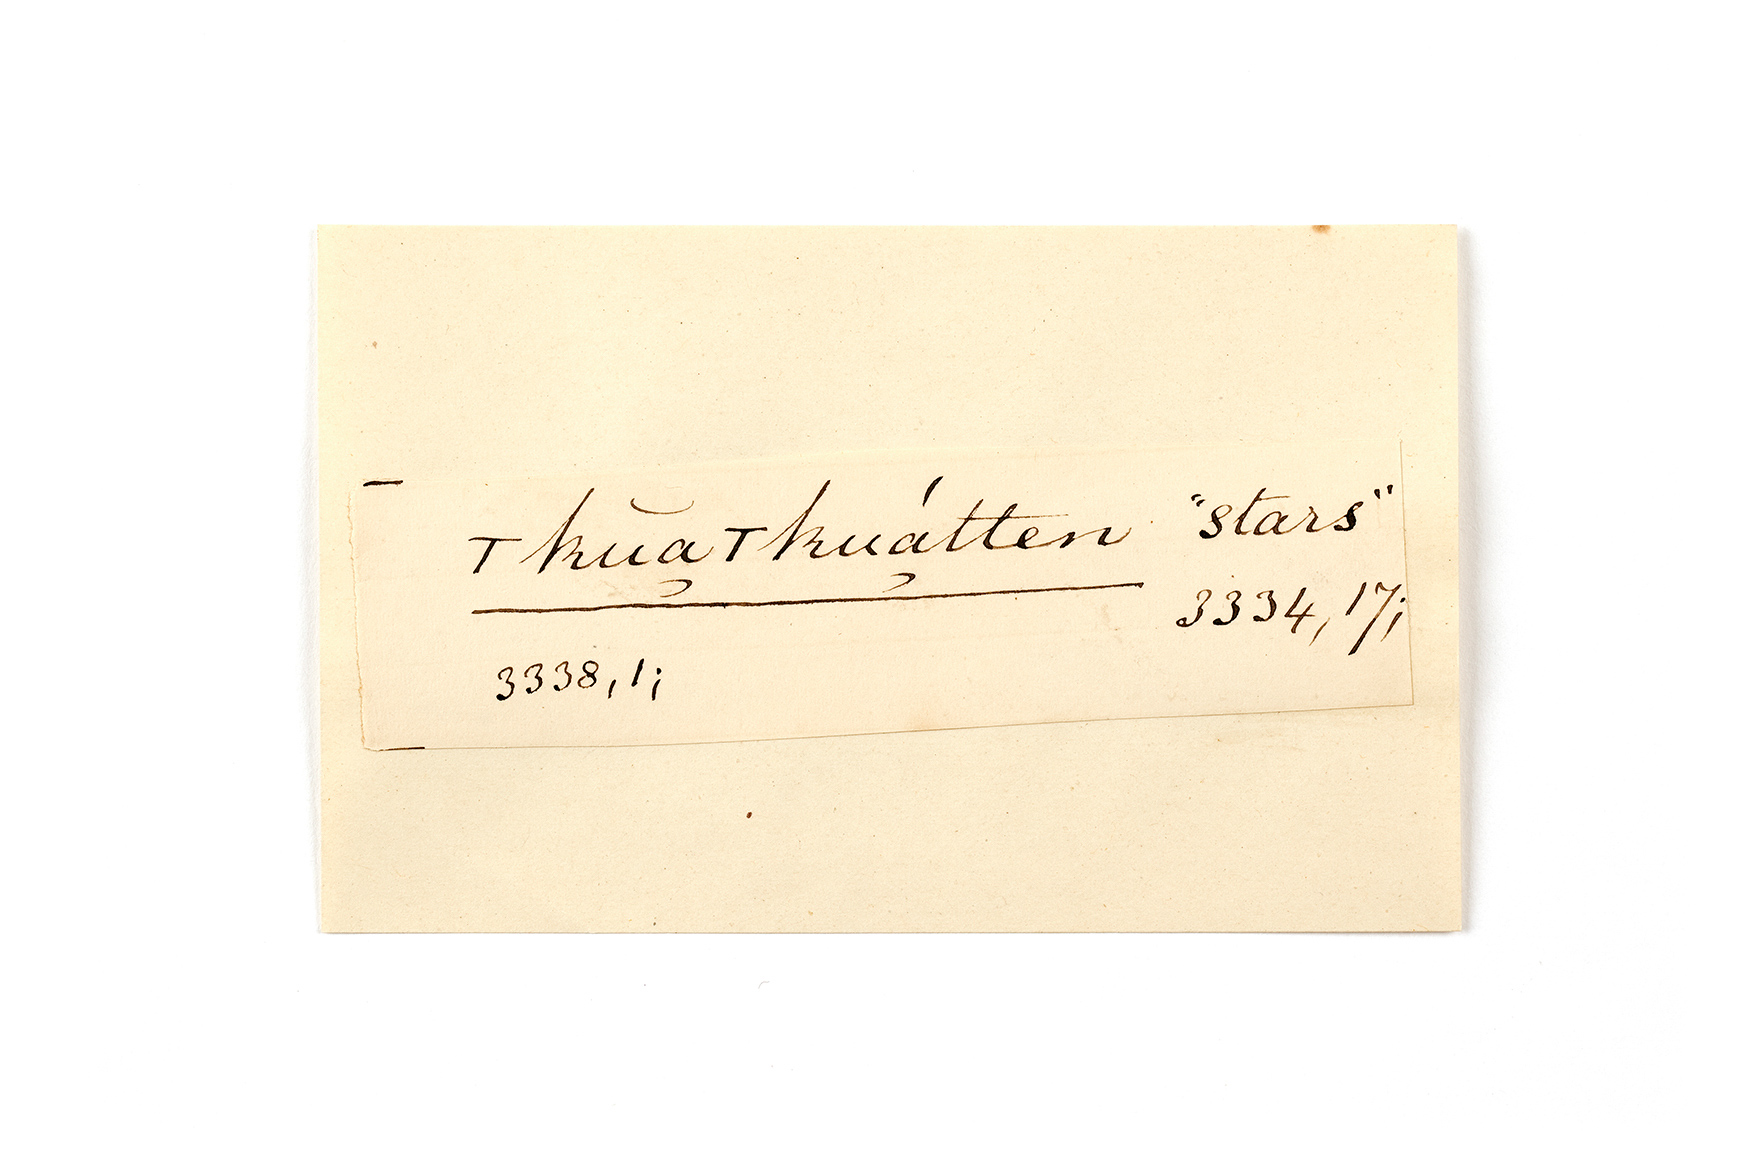 ⊤kŭa̡⊤kuá̡tten "stars"
3334, 17;
3338, 1;